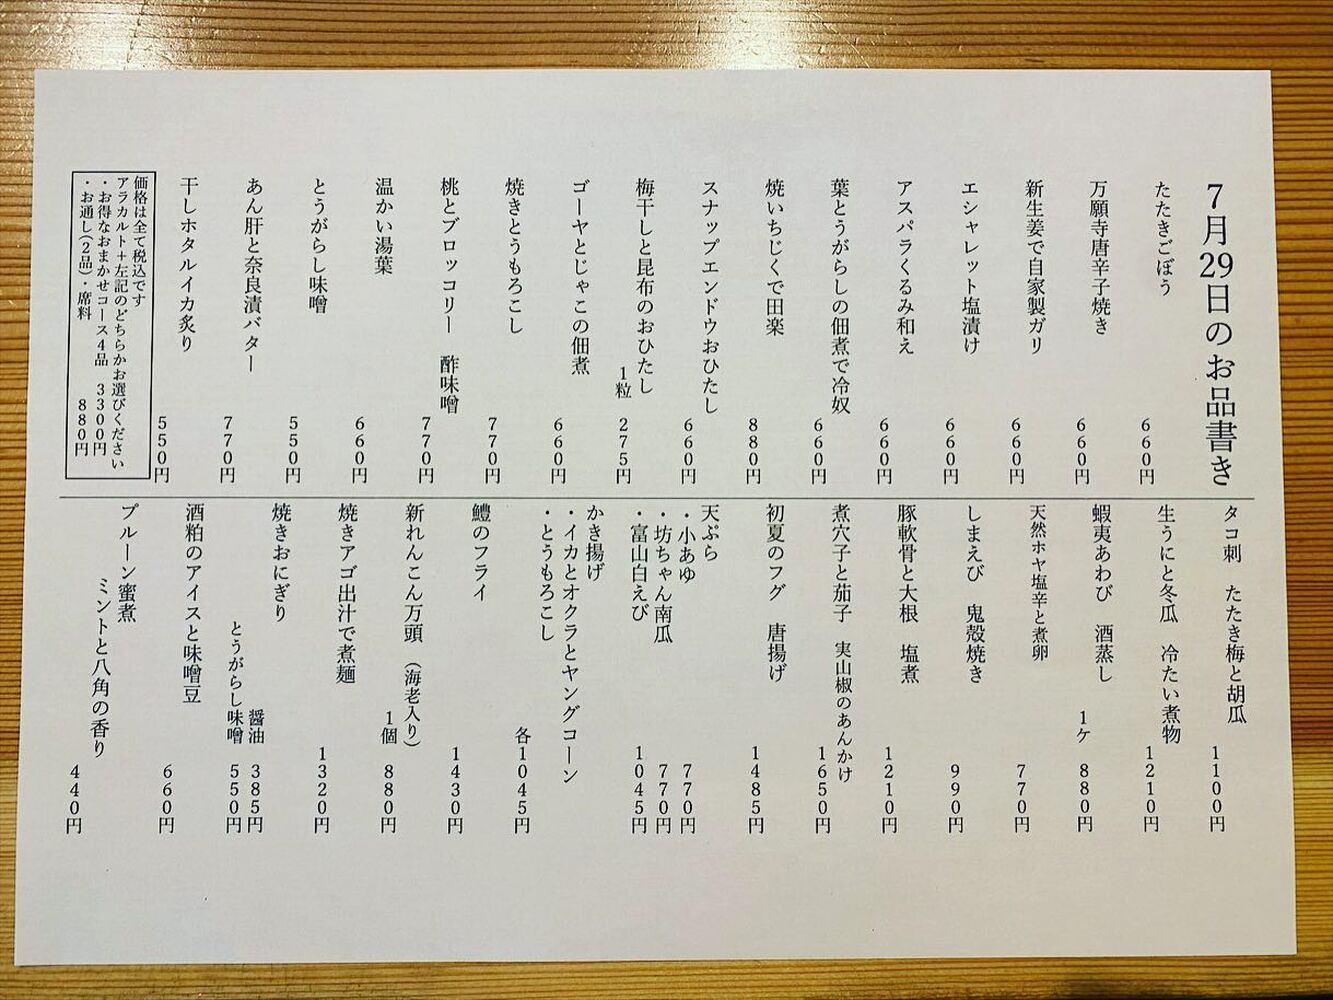 7月29日のお品書き
たたきごぼう 660円
万願寺唐辛子焼き 660円
新生姜で自家製ガリ 660円
エシャレット塩漬け 660円
アスパラくるみ和え 660円
葉とうがらしの佃煮で冷奴 660円
焼いちじくで田楽 880円
スナップエンドウおひたし 660円
梅干しと昆布のおひたし
1粒 275円
ゴーヤとじゃこの佃煮 660円
焼きとうもろこし 770円
桃とブロッコリー 酢味噌 770円
温かい湯葉 660円
とうがらし味噌 550円
あん肝と奈良漬バター 770円
干しホタルイカ炙り 550円
価格は全て税込です
アラカルト+左記のどちらかお選びください
・お得なおまかせコース4品 3300円
・お通し(2品)・席料 880円
タコ刺 たたき梅と胡瓜 1100円
生うにと冬瓜 冷たい煮物 1210円
蝦夷あわび 酒蒸し 1ケ 880円
天然ホヤ塩辛と煮卵 770円
しまえび 鬼殻焼き 990円
豚軟骨と大根 塩煮 1210円
煮穴子と茄子 実山椒のあんかけ 1650円
初夏のフグ 唐揚げ 1485円
天ぷら
・小あゆ 770円
・坊ちゃん南瓜 770円
・富山白えび 1045円
かき揚げ
・イカとオクラとヤングコーン
・とうもろこし 各1045円
鱧のフライ 1430円
新れんこん万頭（海老入り）
1個 880円
焼きアゴ出汁で煮麺 1320円
焼きおにぎり
醤油 385円
とうがらし味噌 550円
酒粕のアイスと味噌豆 660円
プルーン蜜煮
ミントと八角の香り 440円